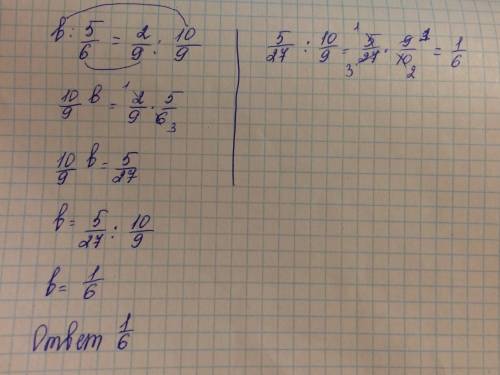 b : 5/6 = 2/9 : 10/9
10/9 b = 1 2/9 · 5/6 3
10/9 b = 5/27
b = 5/27 : 10/9
b = 1/6
Ответ 1/6
5/27 : 10/9 = 1 5/27 3 · 9 1/10 2 = 1/6